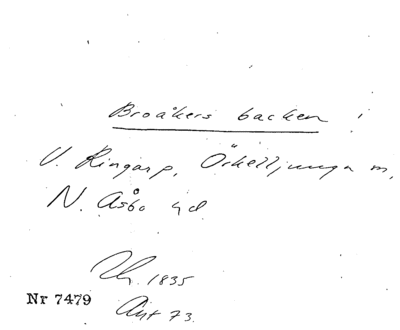 Broåkers backen i
V. Ringarp, Örkelljunga m,
N. Åsbo hd
1835
Nr 7479
Ant 73.